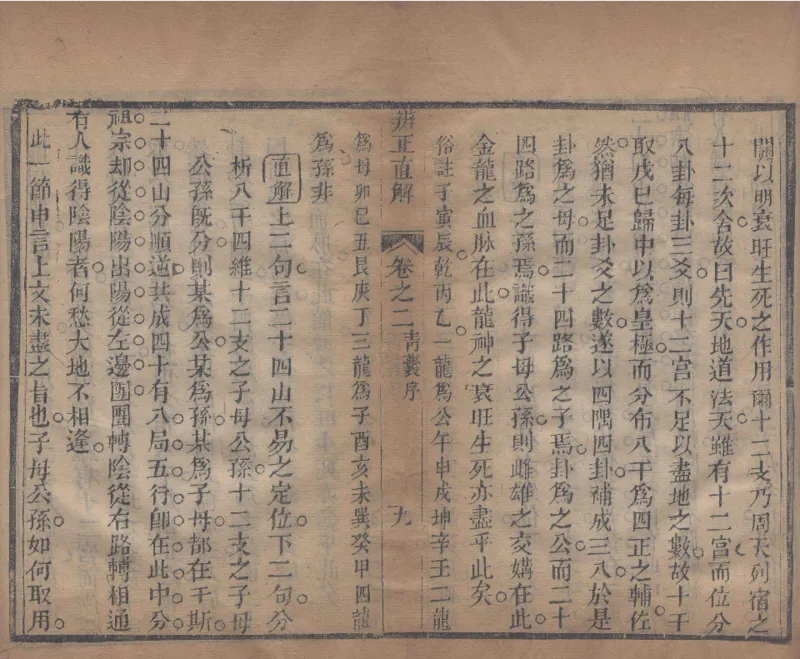 關以明衰旺生死之作用爾十二支乃周天列宿之
十二次舍故曰先天地道法天雖有十二宮而位分
八卦每卦三爻則十二宮不足以盡地之數故十干
取戊巳歸中以爲皇極而分布八干爲四正之輔佐
然猶未足卦爻之數遂以四隅四卦補成三八於是
卦爲之母而二十四路爲之子焉卦爲之公而二十
四路爲之孫焉識得子母公孫則雌雄之交媾在此
金龍之血脉在此龍神之衰旺生死亦盡乎此矣
俗註子寅辰乾丙乙一龍爲公午申戌坤辛壬二龍
辨正直解 卷之二 青囊序 九
爲母卯巳丑艮庚丁三龍爲子酉亥未巽癸甲四龍
爲孫非
直解上二句言二十四山不易之定位下二句分
析八干四維十二支之子母公孫十二支之子母
公孫旣分則某爲公某爲孫某爲子母都在于斯
二十四山分順逆共成四十有八局五行卽在此中分
祖宗却從陰陽出陽從左邊團團轉陰從右路轉相通
有人識得陰陽者何愁大地不相逢
此一節申言上文未盡之旨也子母公孫如何取用